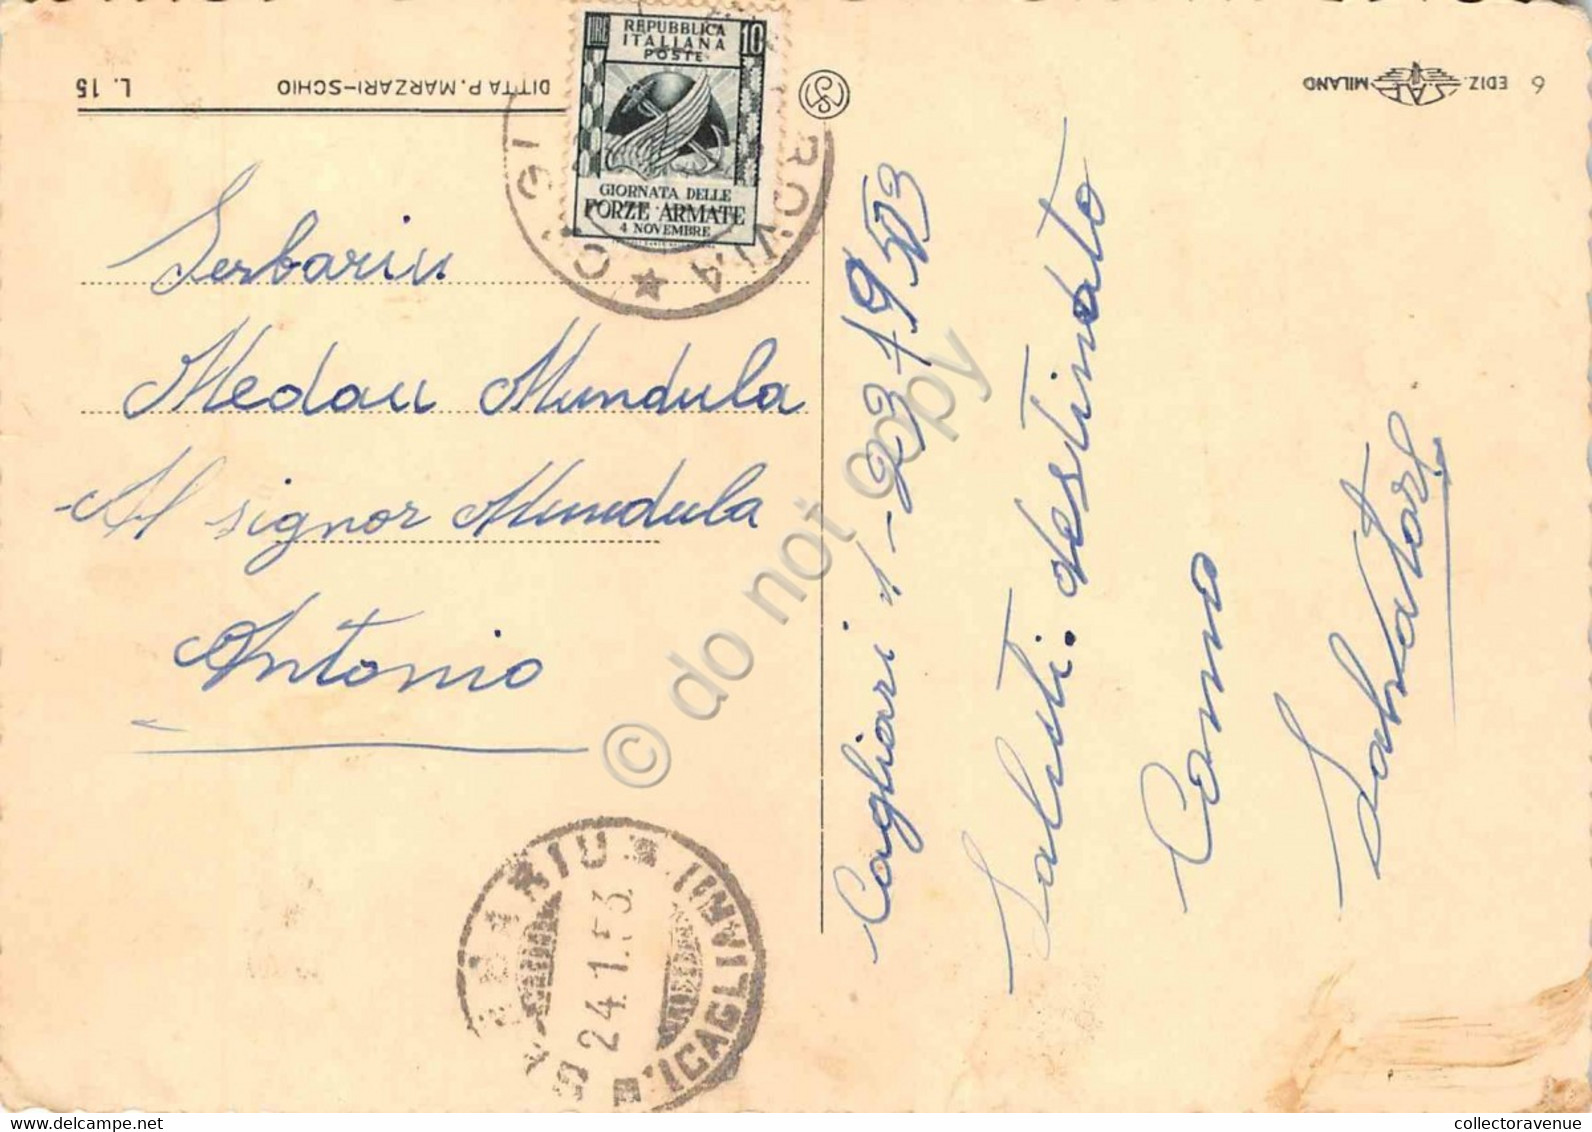 L. 15
DITTA P. MARZARI-SCHIO
LIRE 10
REPUBBLICA
ITALIANA
POSTE
GIORNATA DELLE
FORZE ARMATE
4 NOVEMBRE
EDIZ. SAF MILANO
6
Serbariu
Medau Mundula
Al signor Mundula
Antonio
Cagliari 1-23-1953
Saluti. destinato
Como
Salvatore
SERBARIU
24.1.53.
(CAGLIARI)
© do not copy
collectoravenue.com